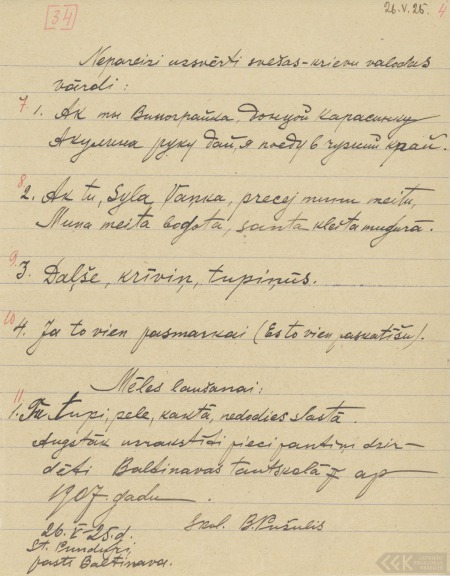 34
26.V.25. 4
Nepareizi uzsvērti svešas-krievu valodas
vārdi:
7 1. Ак ты Виноградика, донцой Карасинку
Акулина руку дай, я поеду в чужий край.
8. 2. Ak tu, Syla Vaņka, precej munu meitu,
Muna meita bogota, santa kleita mugurā.
9. 3. Daļše, krīviņ, tupiņūs.
10 4. Ja to vien pasmarkai (Es to vien paskatīšu).
Mēles laušanai:
11. 1. Tu tupi, pele, kaktā, nedodies slastā.
Augstāk uzrakstīti pieci pantiņi dzir-
dēti Baltinavas tautskolā ap
1907. gadu.
26.V-25.g. Skol. B. Pušulis
St. Punduri,
pasts Baltinava.